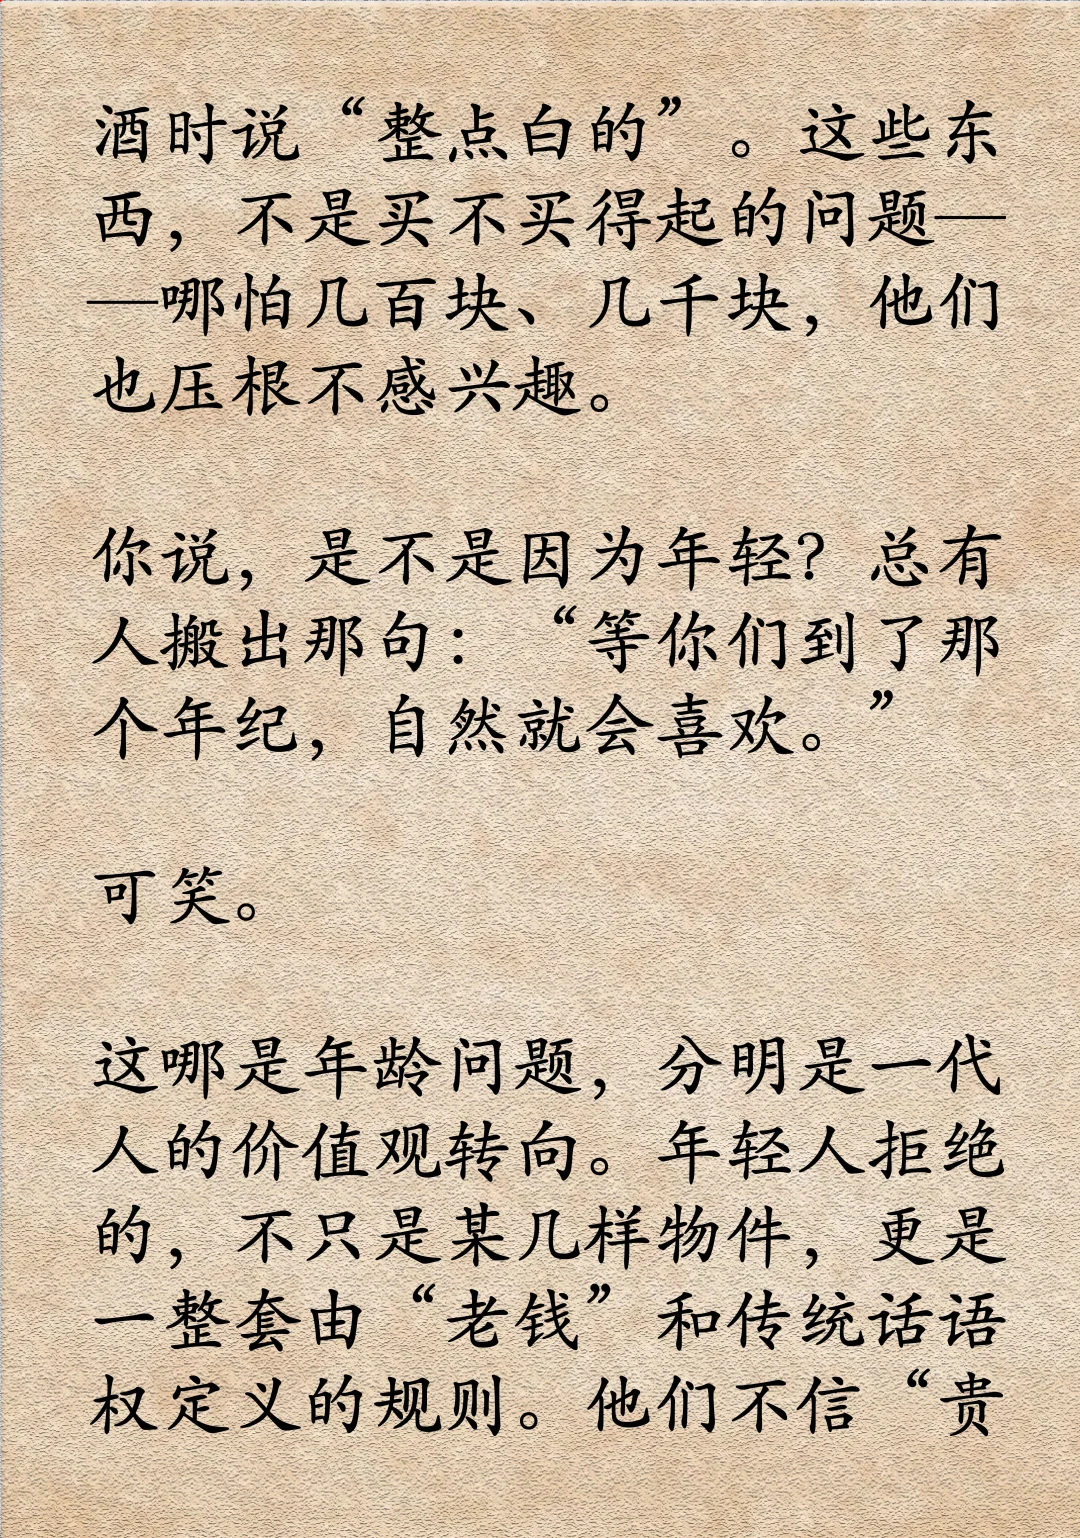 酒时说“整点白的”。这些东
西，不是买不买得起的问题—
—哪怕几百块、几千块，他们
也压根不感兴趣。
你说，是不是因为年轻？总有
人搬出那句：“等你们到了那
个年纪，自然就会喜欢。”
可笑。
这哪是年龄问题，分明是一代
人的价值观转向。年轻人拒绝
的，不只是某几样物件，更是
一整套由“老钱”和传统话语
权定义的规则。他们不信“贵